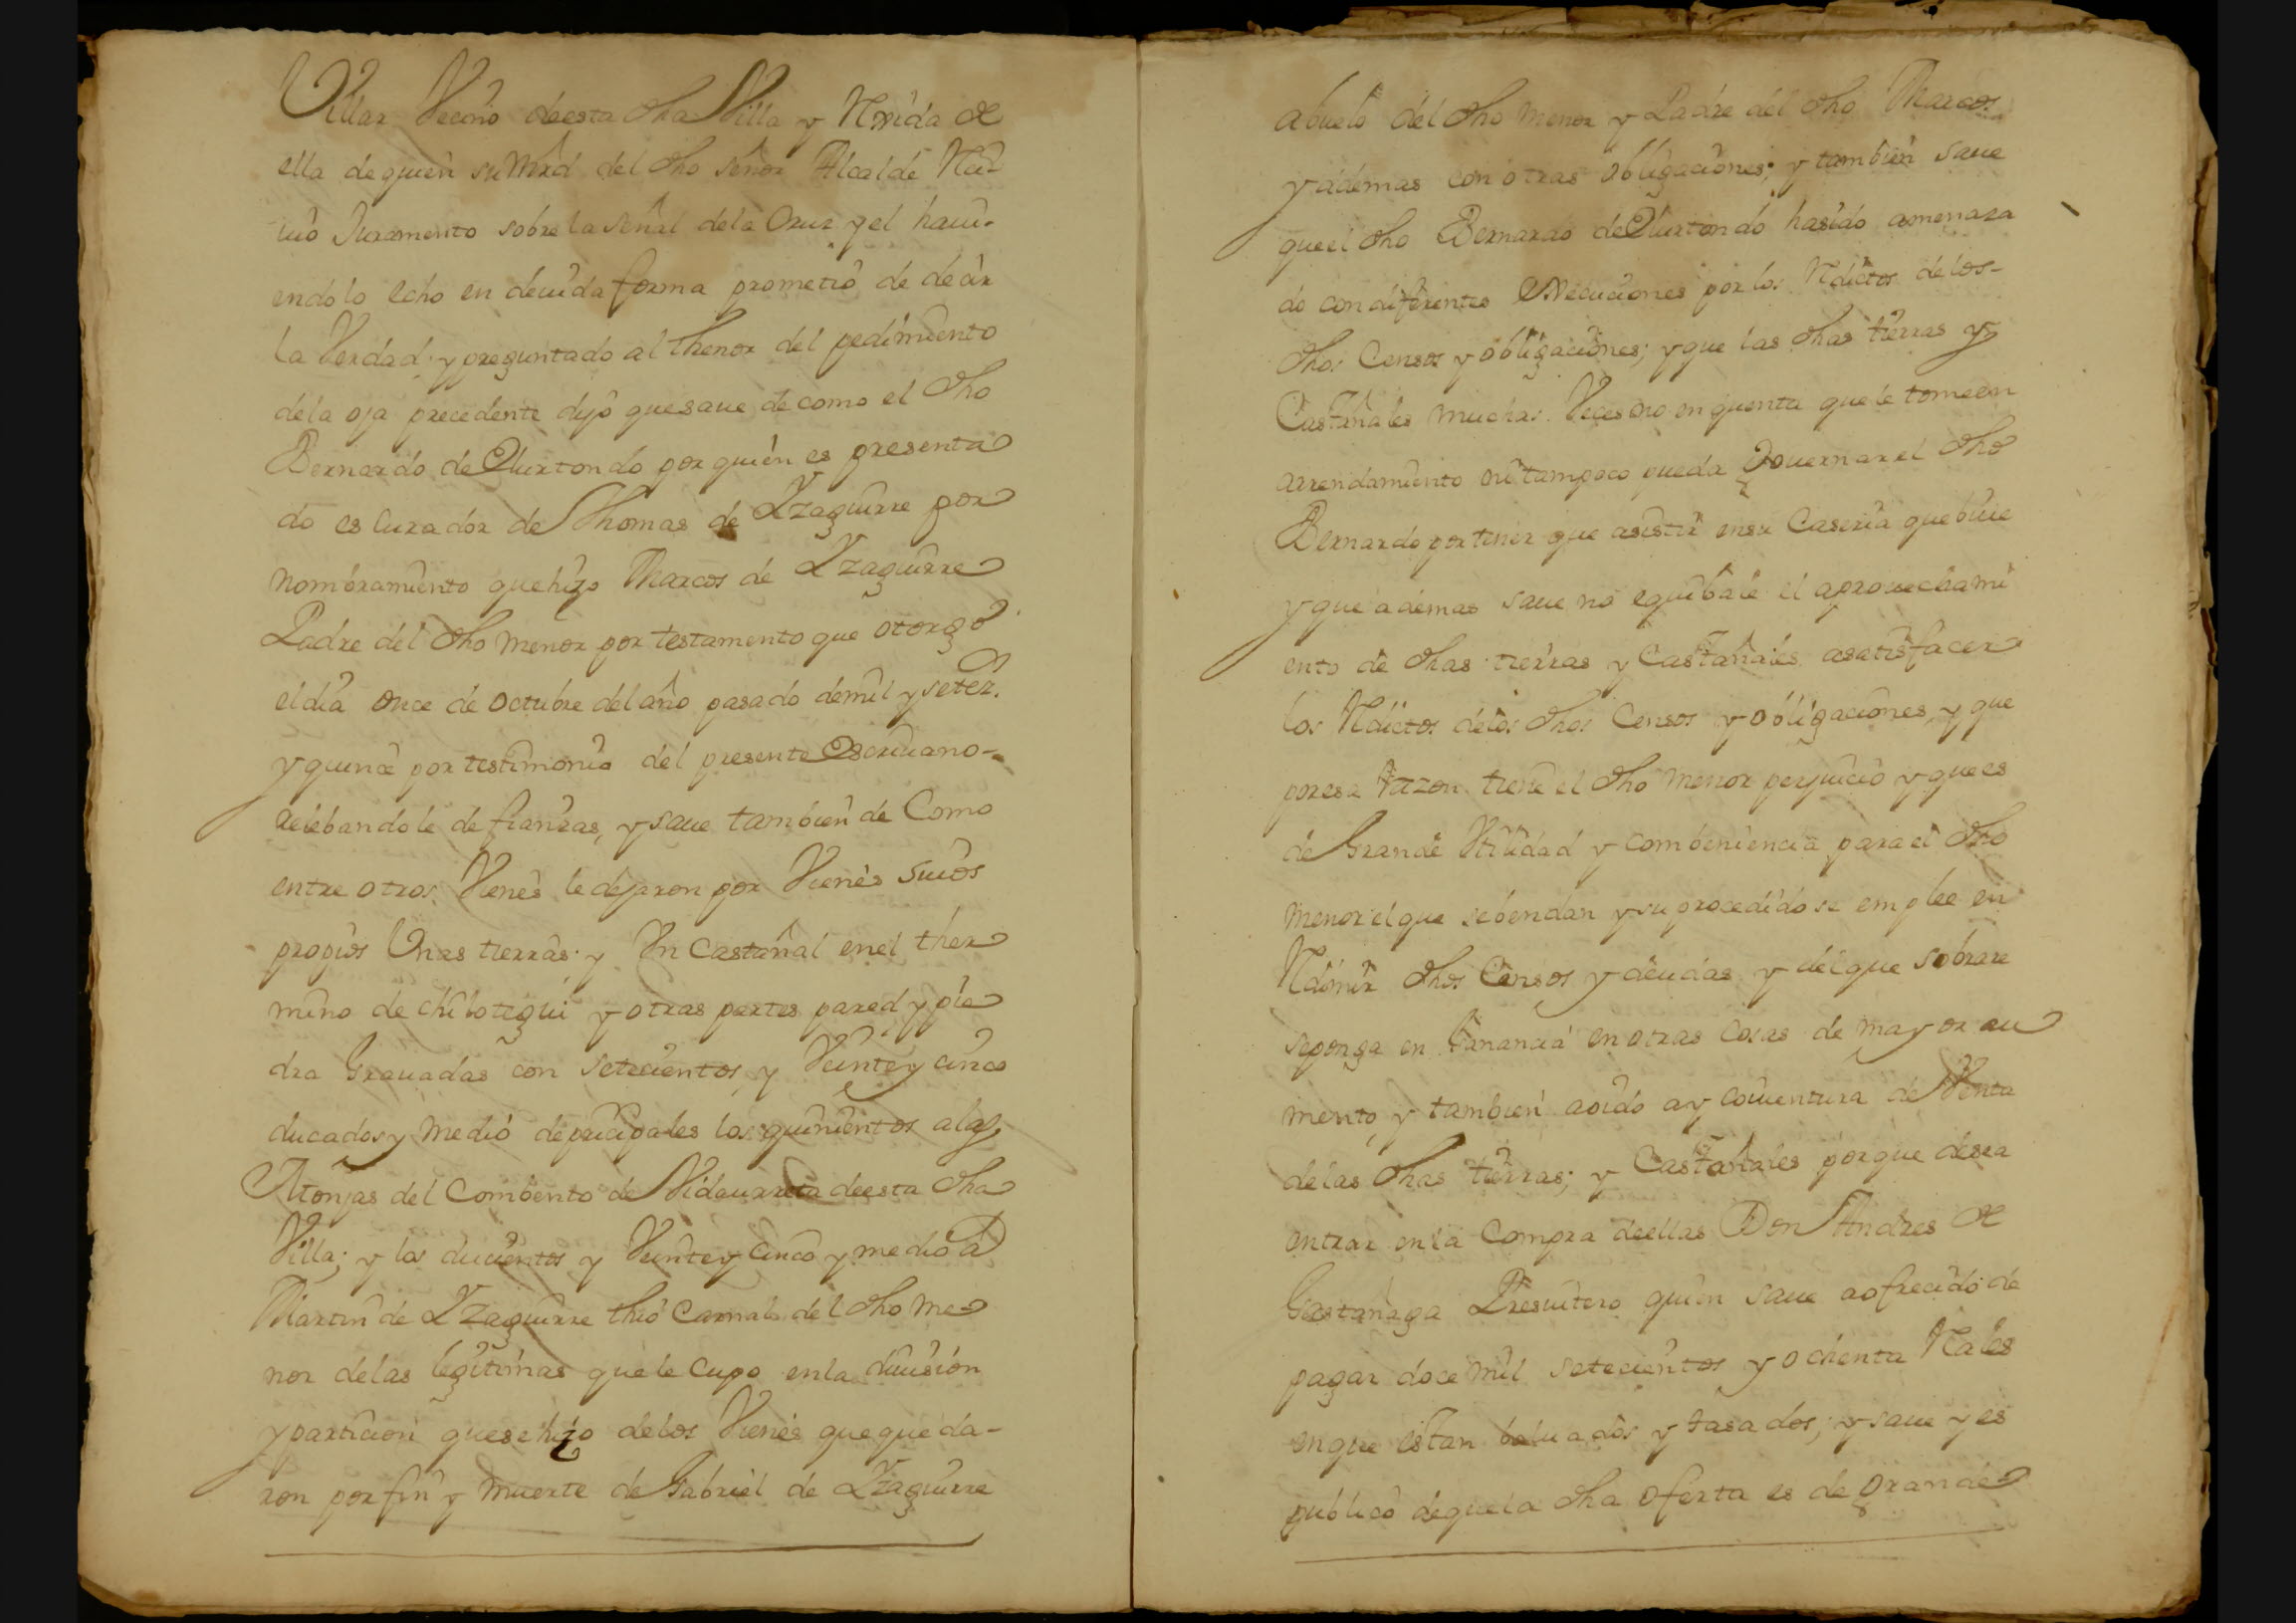 Villar Vecino deesta dha Villa y Nazida de
ella dequien su Mrd del dho señor Alcalde Reci-
uio Juramento sobre la señal dela Cruz y el haui-
endolo echo en deuida forma prometio de decir
la Verdad y preguntado al thenor del pedimiento
dela oja precedente dijo quesaue de como el dho
Bernardo de Elurtondo por quien es presenta
do es Curador de Thomas de Yzaguirre por
nombramiento quehizo Marcos de Yzaguirre
Padre del dho menor por testamento que otorgo
eldia once de octubre delaño pasado demil y setez.
y quince por testimonio del presente Escriuano-
Relebandole de fianzas, y saue tambien de Como
entre otros Vienes ledejaron por Vienes suios
propios Unas tierras y Vn Castañal enel ther
mino de chilotegui y otras partes pared y pie
dra Grauadas con setecientos y Veintey cinco
ducados y medio deprincipales los quinientos alas
Monjas del Combento de Vidaurreta deesta dha
Villa; y los ducientos y Veintey Cinco y medio a
Martin de Yzaguirre thio Carnal del dho me
nor delas legitimas quele Cupo enla diuision
y particion quese hizo delos Vienes quequeda-
ron por fin y muerte de Gabriel de Yzaguirre
abuelo del dho menor y Padre del dho Marcos
y ademas con otras obligaciones; y tambien saue
queel dho Bernardo de Elurtondo hasido amenaza
do con diferentes Execuciones por los Reditos delos-
dhos Censos y obligaciones; y que las dhas tierras y
Castañales muchas Veces no enquentra quele tome en
arrendamiento ni tampoco pueda Gouernar el dho
Bernardo por tener que asistir ensu Caseria que biue
y que ademas saue no equibale el aprouechami
ento de dhas tierras y Castañales asatisfacer
los Reditos delos dhos Censos y obligaciones, y que
poresa razon tiene el dho menor perjuicio y quees
de Grande Vtilidad y combeniencia parael dho
menor elque sebendan y su procedido se emplee en
Redimir dhos Censos y deudas y delque sobrare
seponga en Ganancia en otras cosas de mayor au
mento, y tambien aoido ay Coiuentura de Venta
delas dhas tierras; y Castañales porque desea
entrar enla Compra deellas Don Andres de
Gastañaga Presuitero quien saue aofrecido de
pagar doce mil setecientos y ochenta Rales
enque estan baluados y tasados; y saue y es
publico dequela dha oferta es de Grande